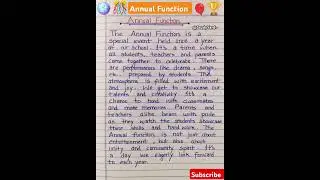 Annual Function
Annual Function
The Annual Function is a
special event held once a year
at our school. It's a time when
all students, teachers and parents
come together to celebrate. There
are performances like drama, songs
etc. prepared by students. The
atmosphere is filled with excitement
and joy. We get to showcase our
talents and creativity. It's a
chance to bond with classmates
and make memories. Parents and
teachers alike beam with pride
as they watch the students showcase
their skills and hard work. The
Annual function is not just about
entertainment, but also about
unity and community spirit. It's
a day we eagerly look forward
to each year.
SUBSCRIBE